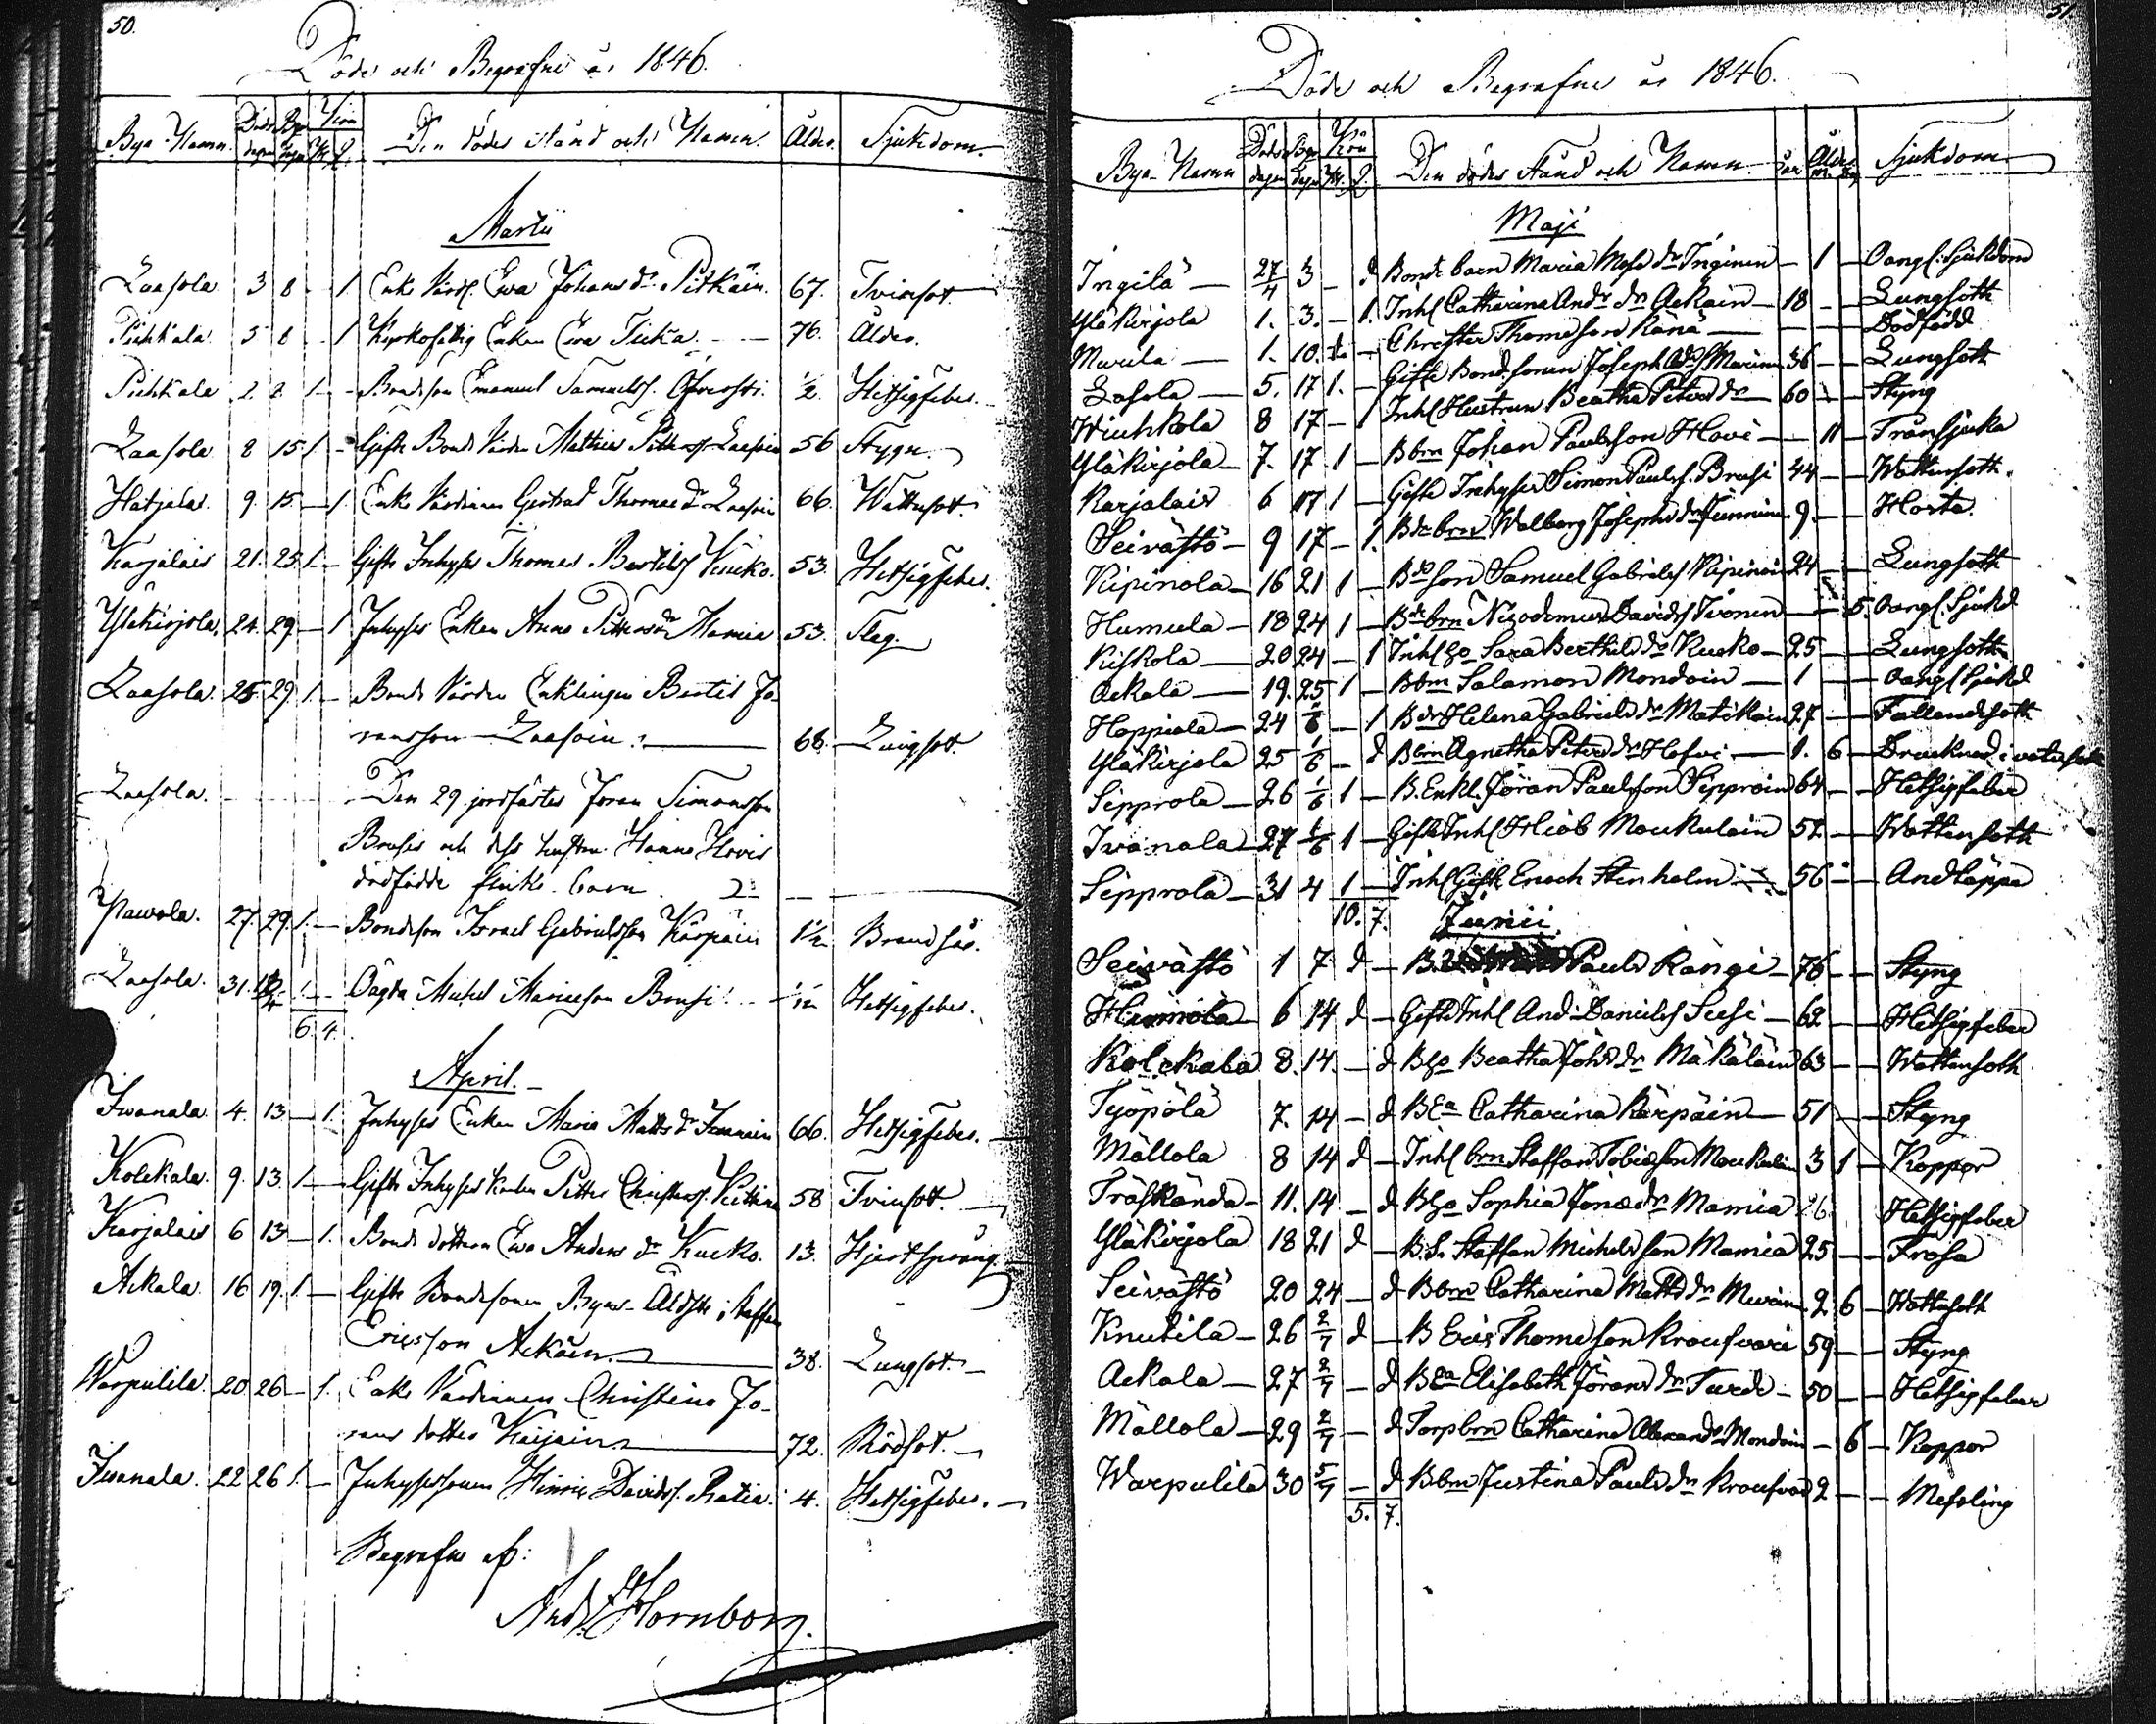 50.
Döde och Begrafne år 1846.
Bya Namn. Döds dagen Begr dagen Kön Mk. Q. Den dödes stånd och Namn. Ålder. Sjukdom.
Martii
Laasola 3 8 - 1 Enke Värd. Ewa Johans dr Pitkäin. 67. Tvinsot.
Pihkala 5 8 - 1 Kyrkofattig Enkan Ewa Ticka. - - 76. Ålder.
Pihkala 2. 8 1 - Bondeson Emanuel Samuelss. 1/2. Hetsigfeber.
Laasola 8 15 1 - Gifte Bonde Värden Mathias Petterss. Laasoin 56 Stygn.
Hatjalax. 9. 15. - 1. Enke Värdinnan Gertrud Thomas dr Laasoin 66. Wattusot.
Karjalais 21. 25. 1. - Gifte Inhyses Thomas Bertilss Kuko. 53. Hetsigfeber.
Yläkirjola. 24. 29 - 1 Inhyses Enkan Anna Petters dr Mamia 53. Slag.
Laasola. 25. 29. 1. - Bonde Värden Enklingen Bertil Jö-
ransson Laasoin. 68. Lungsot.
Laasola. Den 29 jordfästes Jöran Simonsson
Brusis och dess hustru Hanna Hovis
dödfödde flicke barn. 2
Pawola. 27. 29. 1. - Bondeson Israel Gabrielsson Kärpäin 1 1/2 Brandsår.
Laasola. 31. 1. - Oägta Michel Mariæson Brusi. 1/12 Hetsigfeber.
6. 4.
April.
Iwanala. 4. 13 - 1. Inhyses Enkan Maria Matts dr 66. Hetsigfeber.
Kolekala. 9. 13. 1. - Gifte Inhyses Karlen Petter Christerss. 58 Tvinsot.
Karjalais 6 13 - 1. Bonde dottren Ewa Anders dr Kucko. 13. Hjertsprång.
Ackala 16 19. 1. - Gifte Bondesonen Byens Åldste Staffan
Ericsson Ackäin. 38. Lungsot.
Warpulila. 20. 26 - 1. Enke Värdinnan Christina Jö-
rans dotter Kaijain 72. Rödsot.
Iwanala. 22 26 1. - Inhysessonen Hinric Davidss. Ratia. 4. Hetsigfeber.
Begrafne af:
And. Hornborg.
51.
Döde och Begrafne år 1846.
Bya-Namn Döds dagen Begr dagen Kön Mk. Q. Den dödes stånd och Namn. Ålder år m. dag Sjukdom
Maji
Ingilä 27/4 3 - d Bonde barn Maria Mose dr Inginen - 1 - Oangf. sjukdom
Yläkirjola 1. 3. - 1. Inhl Catharina Ands dr Ackain 18 - - Lungsoth
Murila 1. 10. - Christer Thomeson Ränä - - - Dödfödd
Lasola 5. 17 1. - Gifte Bondsonen Joseph 36 - - Lungsoth
Hiuhkola 8 17 - 1 Inhl Hustrun Beatha Peters dr 60 - - Styng
Yläkirjola 7. 17 1 - Bbrn Johan Paulsson Hovi - 11 - Trånsjuka
Karjalais 6 17 1 - Gifte Inhyses Simon Paulss. Brusi 44 - - Wattensoth.
Seivästö 9 17 - 1. Bde brn Walborg Josephs dr 9 - - Hosta.
Kipinola 16 21 1 - Bde son Samuel Gabrielss Kipinoin 24 - - Lungsoth
Humula 18 24 1 - Bde brn Nicodemus Davidss Tivonen - - 5. Oangf. Sjukd
Kiskola 20 24 - 1 Inhl Ho Sara Berthils dr Kucko 25 - - Lungsoth
Ackala 19. 25 1 - Bbrn Salamon Mondoin 1 - - Oangf Sjukd
Hoppiala 24 1/6 - 1 Bdr Helena Gabriels dr Matikain 27 - - Fallandesoth
Yläkirjola 25 1/6 - d Bbrn Agnetha Peters dr Hofvi 1. 6 - Drucknad i
Sepprola 26 1/6 1 - B. Enkl. Jöran Paulsson Sepproin 64 - - Hetsigfeber
Ivanala 27 1/6 1 - Gifte Inhl Hiob Moukulain 52 - - Wattensoth
Sepprola 31 4 1 - Inhl Gifte Enoch Stenholm 56 - - Andtäppa
10. 7.
Junii.
Seivästö 1 7 d - Pauls Rängi 76 - - Styng
6 14 d - Gifte Inhl And. Daniels Susi 62 - - Hetsigfeber
Kolekala 8. 14. - d B Ho Beatha Joh. dr Mäkäläin 63 - - Wattensoth
Työpölä 7. 14 - d BEa Catharina Kärpäin 51 - - Styng
Mällola 8 14 d - Inhl brn Staffan Tobiæson Moukulain 3 1 - Koppor
Träskända 11. 14. - d B Ho Sophia Jonæ dr Mamia 26. Hetsigfeber
Yläkirjola 18 21 d - B.S. Staffan Michelsson Mamia 25 - - Frosa
Seivästö 20 24 - d Bbrn Catharina Matts dr 2 6 - Wattusoth
Knutila 26 2/7 d - B Eric Thomeson Kroufvori 59 - - Styng
Ackala 27 2/7 - d BEa Elisabeth Jörans dr Turdi 50 - - Hetsigfeber
Mällola 29 2/7 - d Torpbrn Catharina Alexands Mondoin - 6 - Koppor
Warpulila 30 5/7 - d Bbrn Justina Pauls dr 2 - - Messling
5. 7.